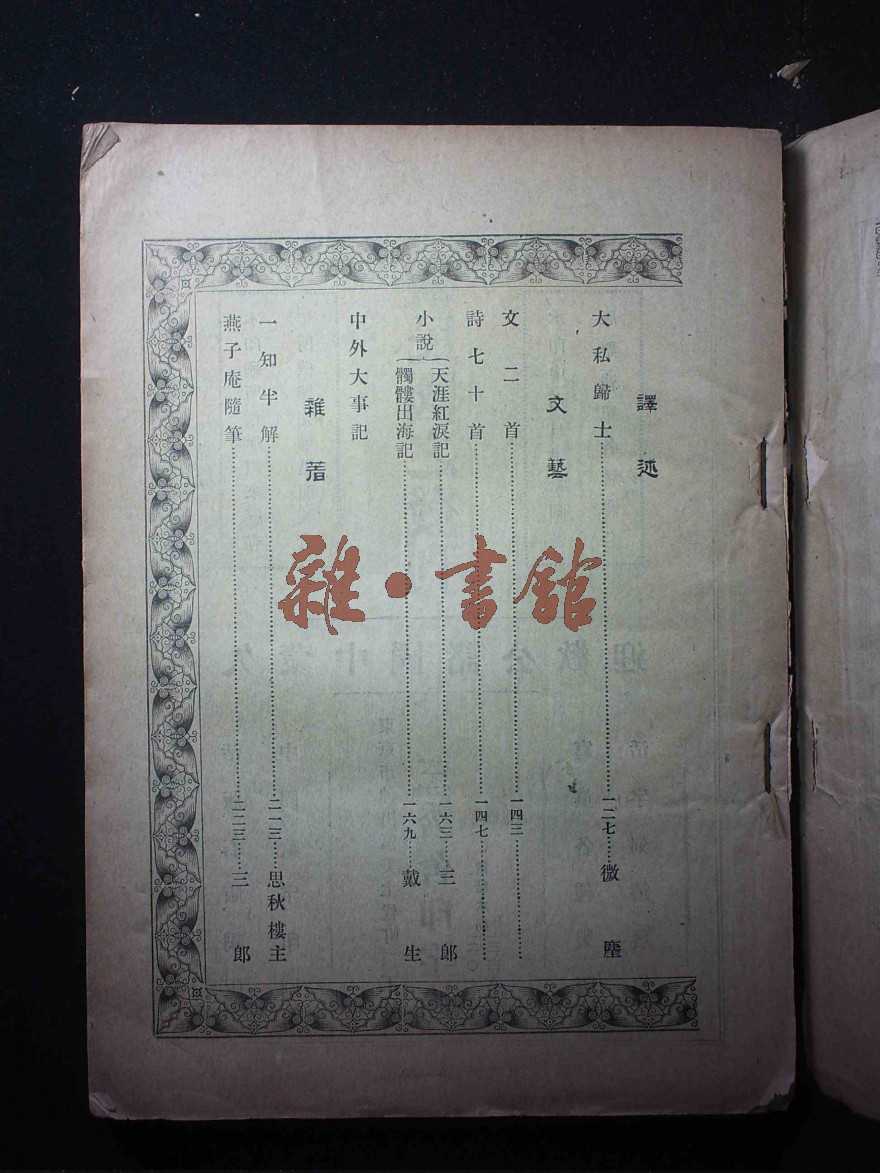 譯述
大私歸士……一二七……微塵
文藝
文二首……一四三……
詩七十首……一四七……
小說
天涯紅淚記……一六三……三郎
髑髏出海記……一六九……戴生
中外大事記
雜著
一知半解……二一三……思秋樓主
燕子庵隨筆……二二三……三郎
雜·書館